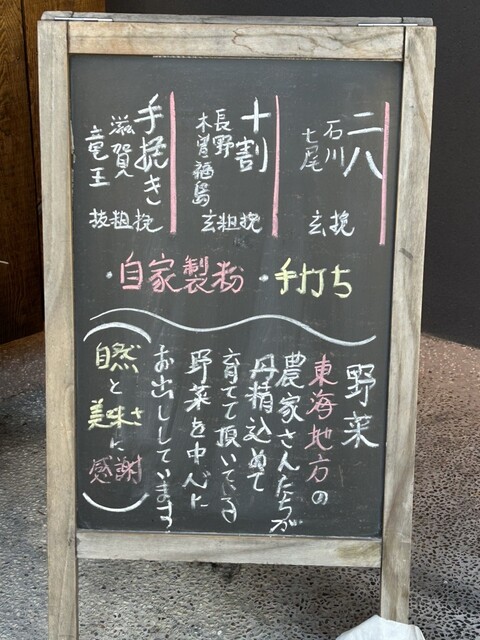 二八
石川
七尾
玄挽
十割
長野
木曽福島
玄粗挽
手挽き
滋賀
竜王
抜粗挽
・自家製粉・手打ち
野菜
東海地方の
農家さんたちが
丹精込めて
育てて頂いている
野菜を中心に
お出ししています
(自然と美味さに感謝)